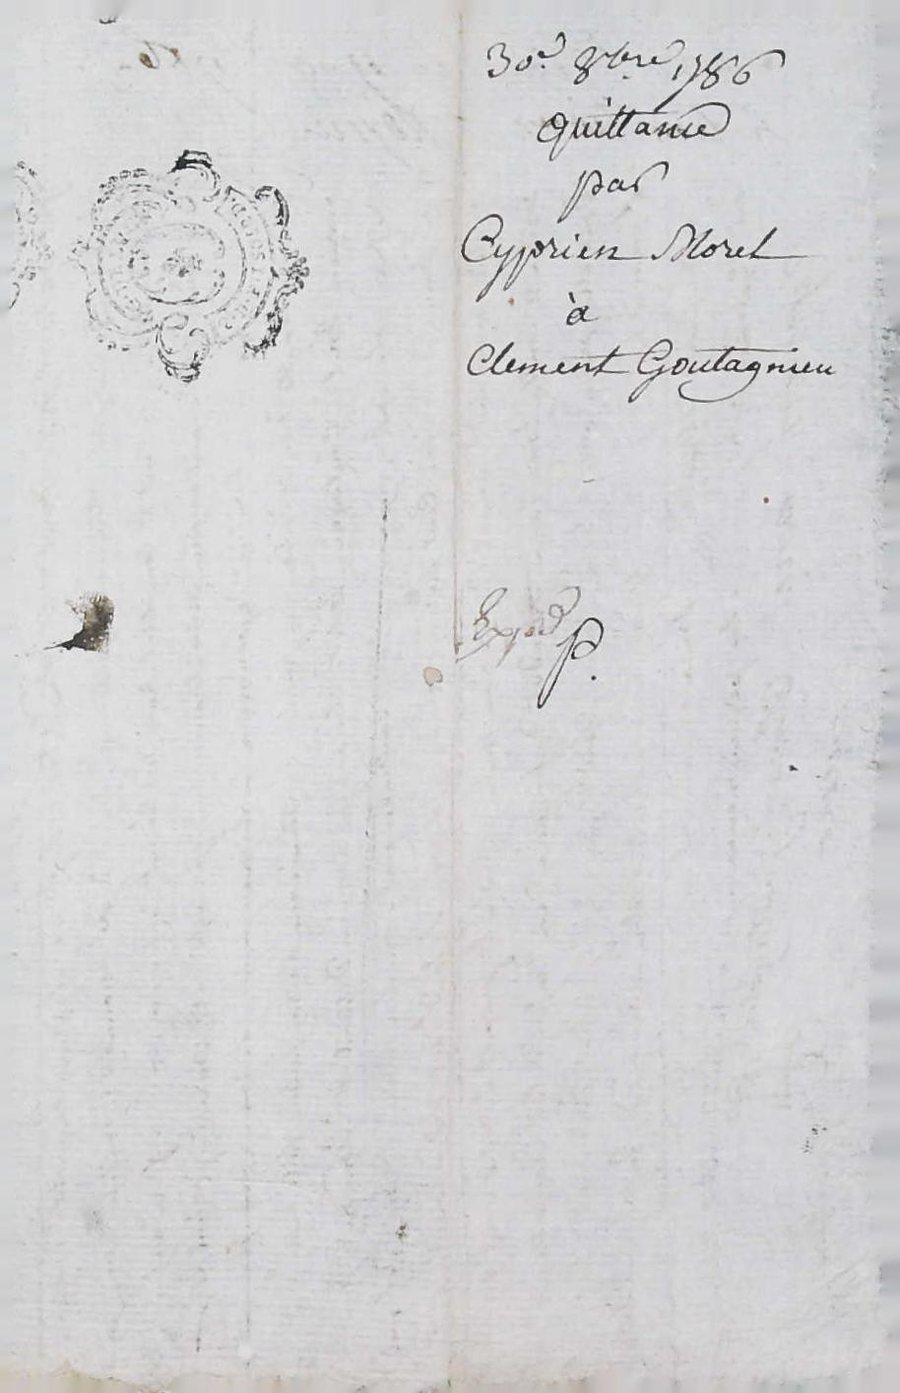 30e 8bre 1786
quittance
par
Cyprien Morel
à
Clement Goutagnieu
Expéd
P.